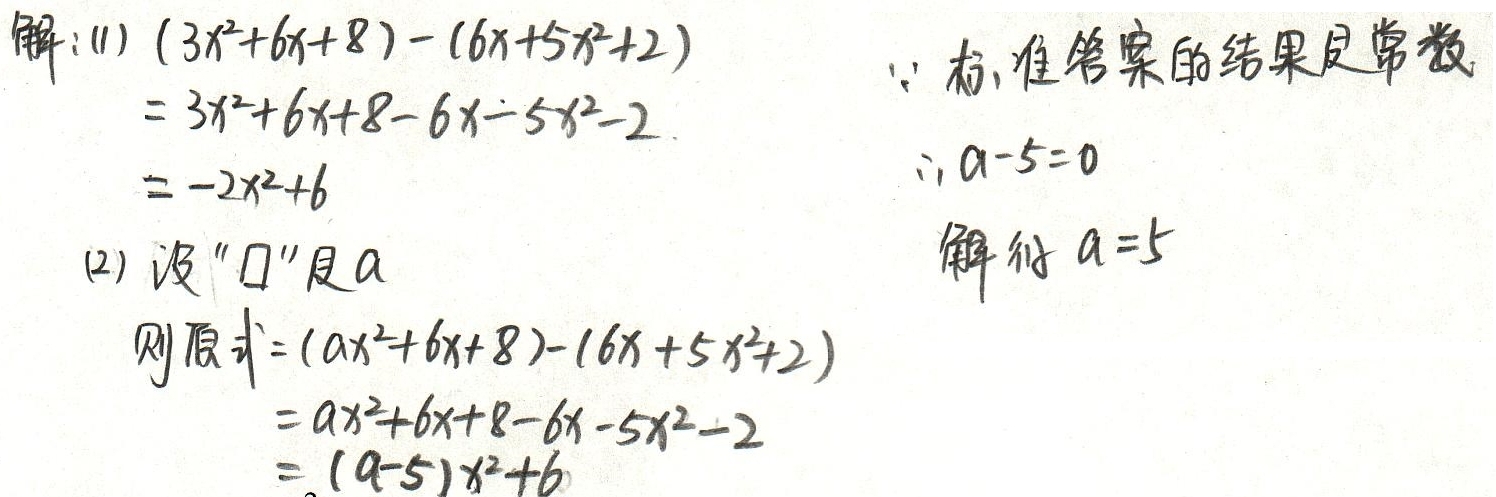 解:(1) (3x²+6x+8)-(6x+5x²+2)
= 3x²+6x+8-6x-5x²-2
= -2x²+6
(2) 设"口"是a
则原式=(ax²+6x+8)-(6x+5x²+2)
= ax²+6x+8-6x-5x²-2
= (a-5)x²+6
∵ 标准答案的结果是常数
∴ a-5=0
解得 a=5